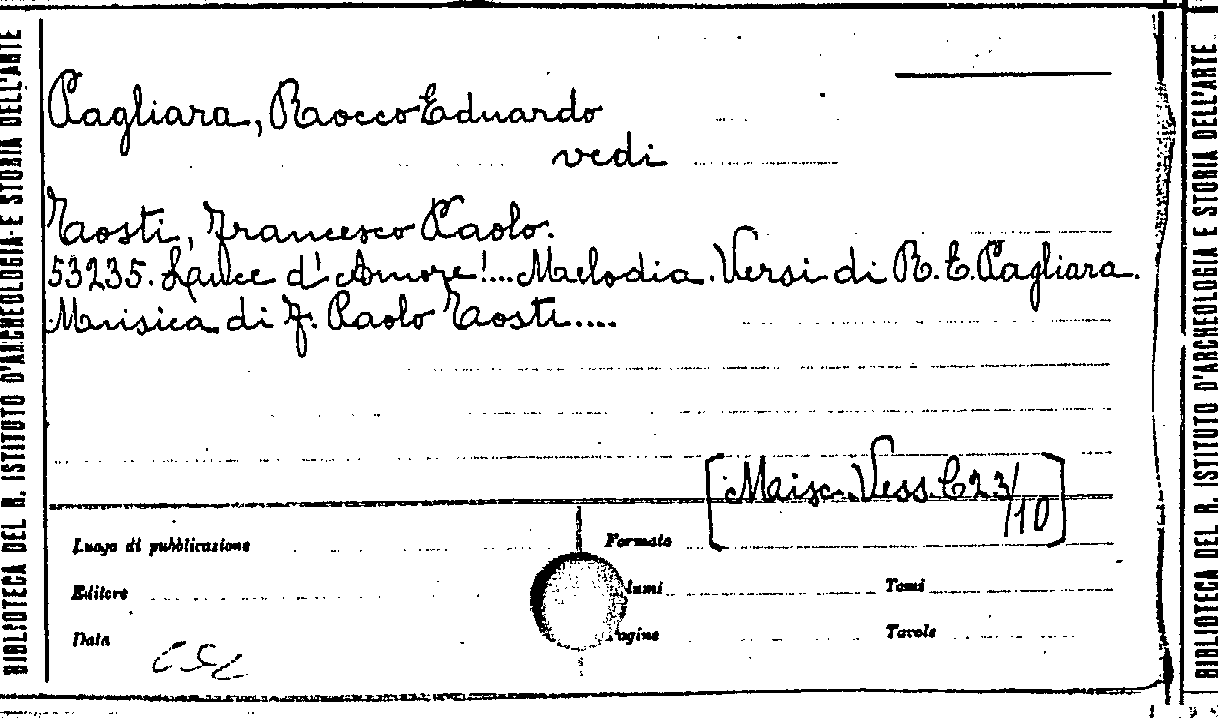 BIBLIOTECA DEL R. ISTITUTO D'ARCHEOLOGIA E STORIA DELL'ARTE
Pagliara, Rocco Eduardo
vedi
Tosti, Francesco Paolo.
53235. Luce d'Amore!... Melodia. Versi di R. E. Pagliara.
Musica di F. Paolo Tosti....
[Misc. Vess. C 23/10]
Luogo di pubblicazione
Formato
Editore
lumi
Tomi
Data
agine
Tavole
BIBLIOTECA DEL R. ISTITUTO D'ARCHEOLOGIA E STORIA DELL'ARTE